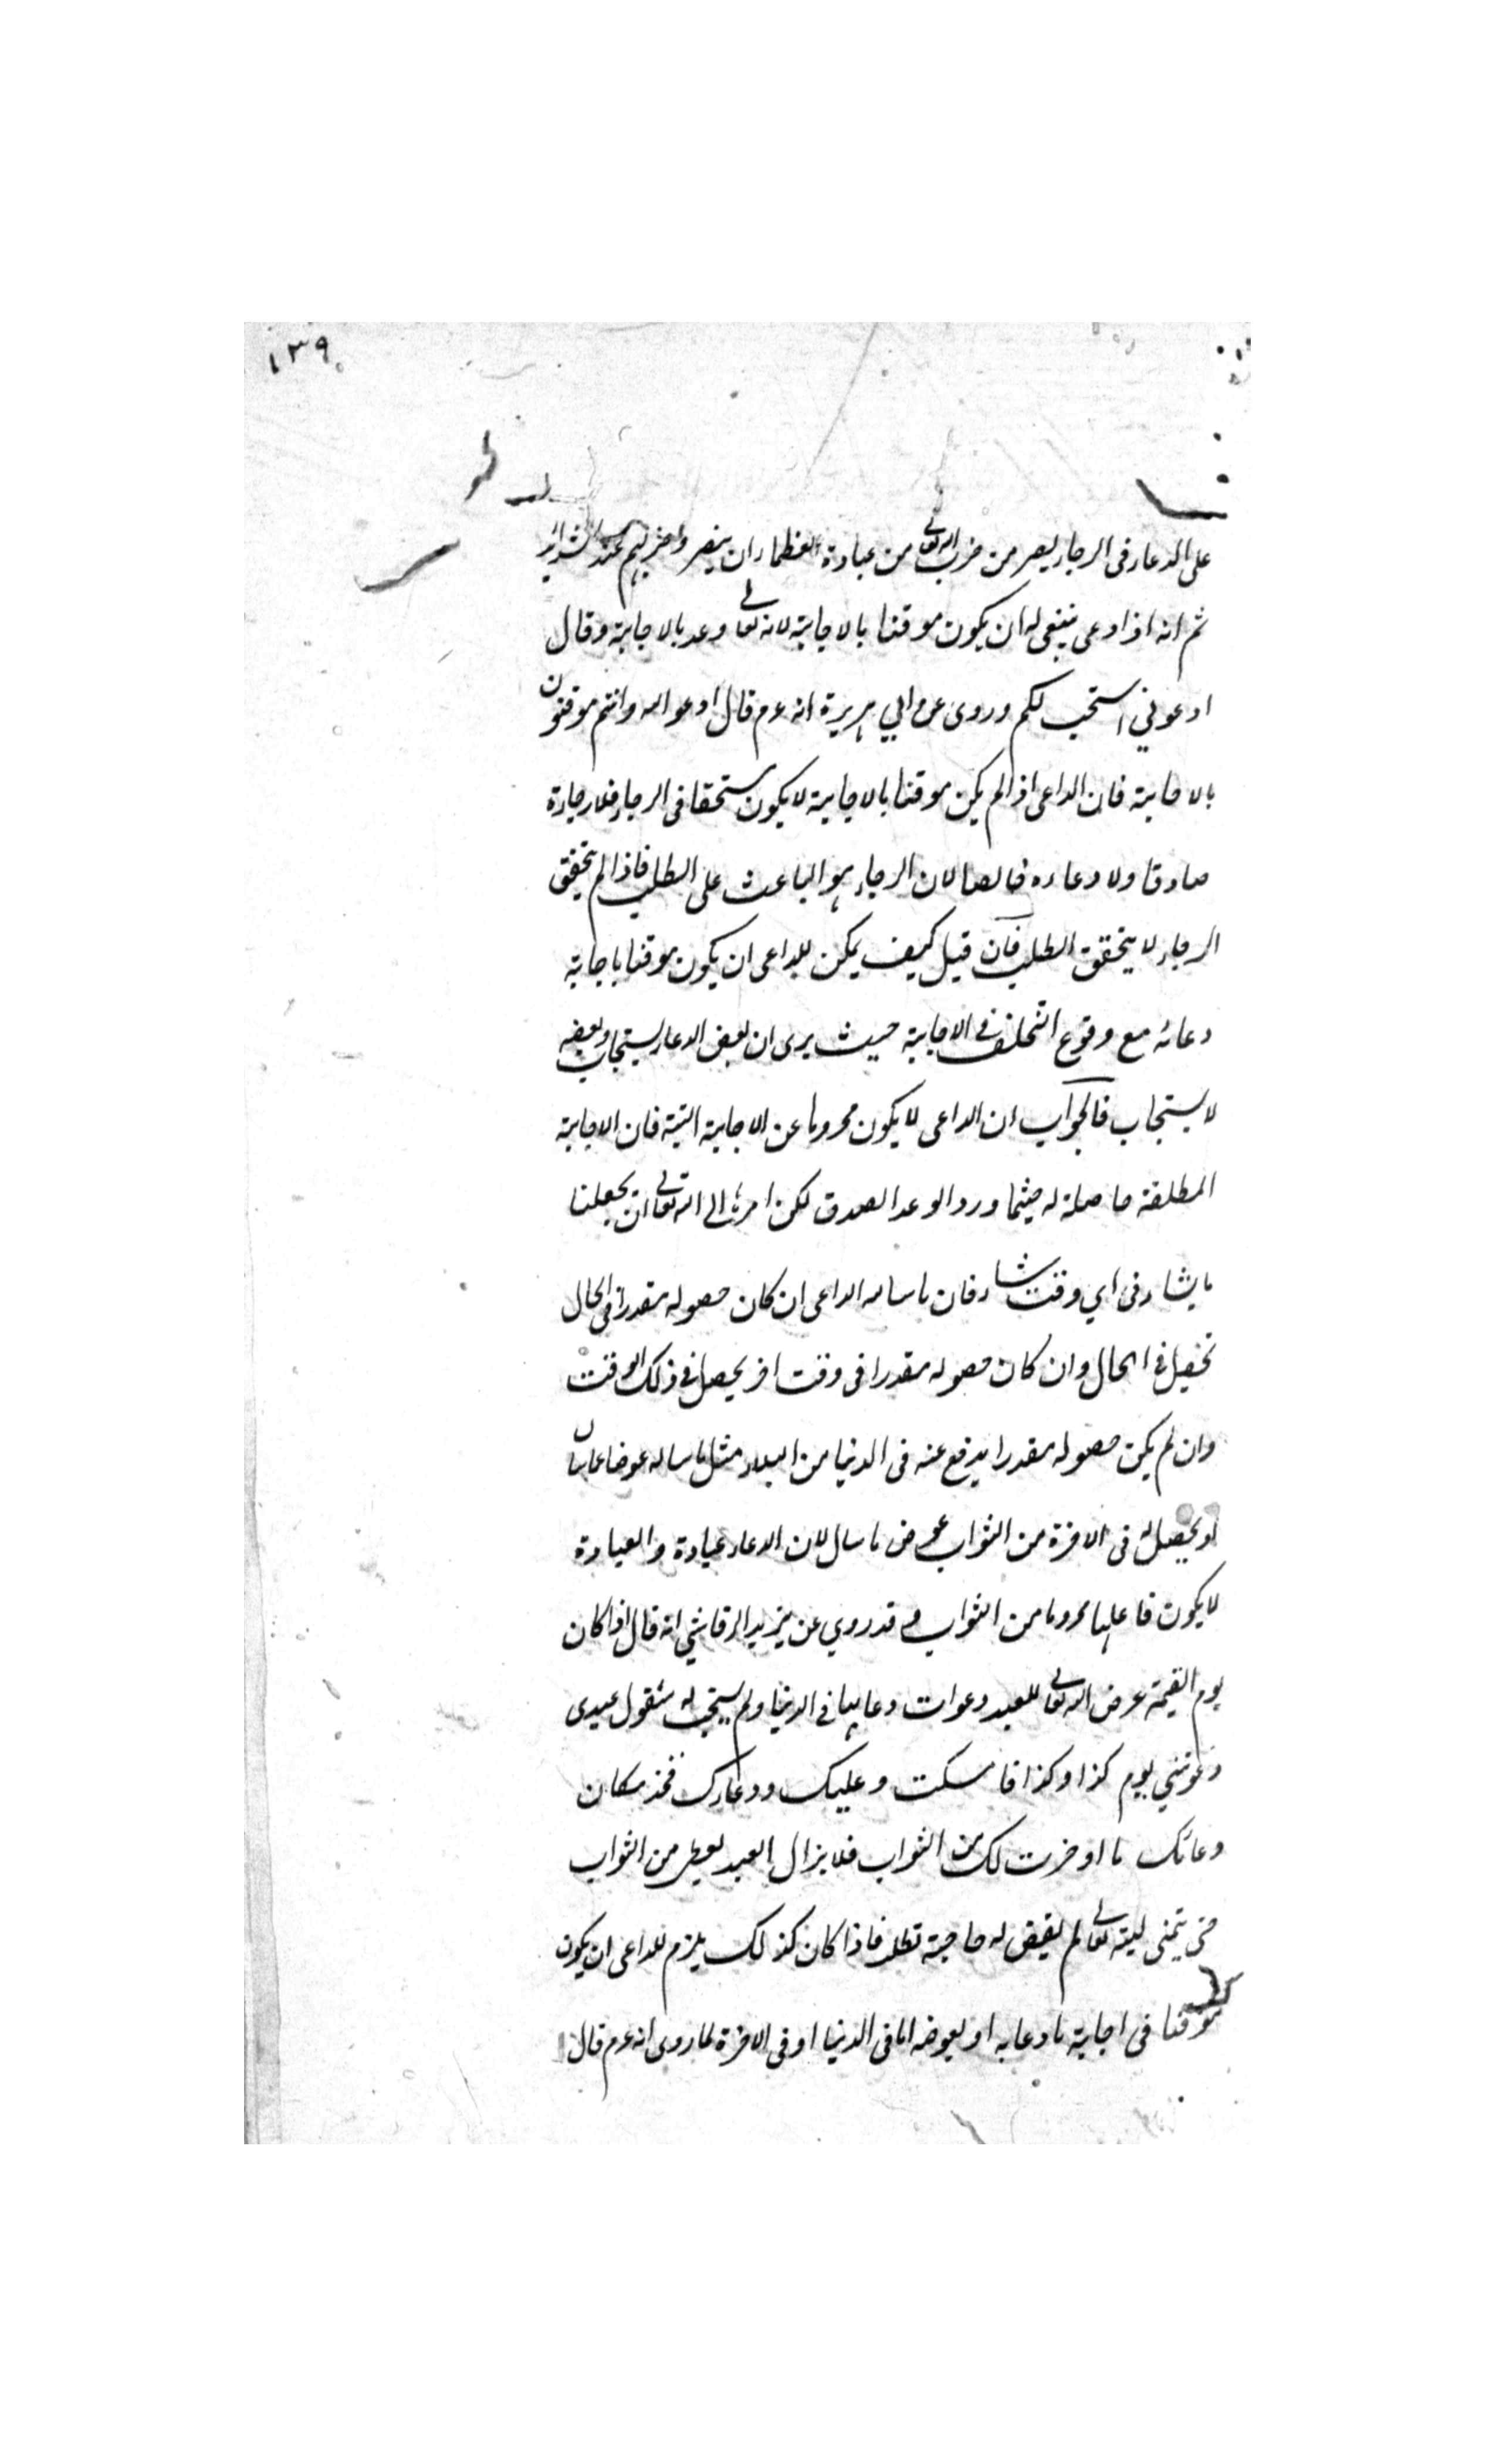 ١٣٩
على الدعاء فى الرجاء يصير من حزب الله تعالى من عبادة العظماء ان ينصروا حزبهم عند الشدائد
ثم انه اذا دعى ينبغى له ان يكون موقنا بالاجابة لانه تعالى وعد بالاجابة وقال
ادعوني استجب لكم وروى عن ابي هريرة انه عم قال ادعوا الله وانتم موقنون
بالاجابة فان الداعى اذا لم يكن موقنا بالاجابة لا يكون مستحقا فى الرجاء فلا رجاءه
صادقا ولا دعاءه خالصا لان الرجاء هو الباعث على الطلب فاذا لم يتحقق
الرجاء لا يتحقق الطلب فان قيل كيف يمكن للداعى ان يكون موقنا باجابة
دعائه مع وقوع التخلف فى الاجابة حيث يرى ان بعض الدعاء يستجاب وبعضه
لا يستجاب فالجواب ان الداعى لا يكون محروما عن الاجابة البتة فان الاجابة
المطلقة حاصلة له حيثما ورد الوعد الصدق لكن امرها الى الله تعالى ان يجعلنا
ما يشاء فى اي وقت شاء فان ما ساله الداعى ان كان حصوله مقدرا فى الحال
تحصل فى الحال وان كان حصوله مقدرا فى وقت اخر يحصل فى ذلك الوقت
وان لم يكن حصوله مقدرا يدفع عنه فى الدنيا من البلاء مثل ما ساله عوضا عما سال
او يحصل له فى الاخرة من الثواب عوض ما سال لان الدعاء عبادة والعبادة
لا يكون فاعلها محروما من الثواب وقد روي عن يزيد الرقاشي انه قال اذا كان
يوم القيمة عرض الله تعالى للعبد دعوات دعا بها فى الدنيا ولم يستجب له فيقول عبدى
دعوتني يوم كذا وكذا فامسكت وعليك ودعاءك فخذ مكان
دعائك ما اوخرت لك من الثواب فلا يزال العبد يعطى من الثواب
حتى يتمنى ليته تعالى لم يقض له حاجة قط فاذا كان كذلك يلزم للداعى ان يكون
موقنا فى اجابة ما دعا به او يعوضه اما فى الدنيا او فى الاخرة لما روى انه عم قال